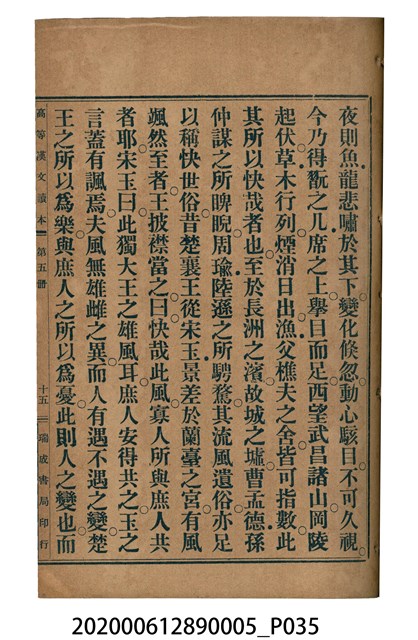 夜則魚龍悲嘯於其下。變化倏忽。動心駭目。不可久視。
今乃得翫之几席之上。擧目而足。西望武昌諸山。岡陵
起伏。草木行列。煙消日出。漁父樵夫之舍。皆可指數。此
其所以快哉者也。至於長洲之濱。故城之墟。曹孟德孫
仲謀之所睥睨。周瑜陸遜之所騁騖。其流風遺俗。亦足
以稱快世俗。昔楚襄王從宋玉景差於蘭臺之宮。有風
颯然至者。王披襟當之曰。快哉此風。寡人所與庶人共
者耶。宋玉曰。此獨大王之雄風耳。庶人安得共之。玉之
言蓋有諷焉。夫風無雄雌之異。而人有遇不遇之變。楚
王之所以爲樂。與庶人之所以爲憂。此則人之變也。而
高等漢文讀本 第五册 十五 瑞成書局印行
202000612890005_P035